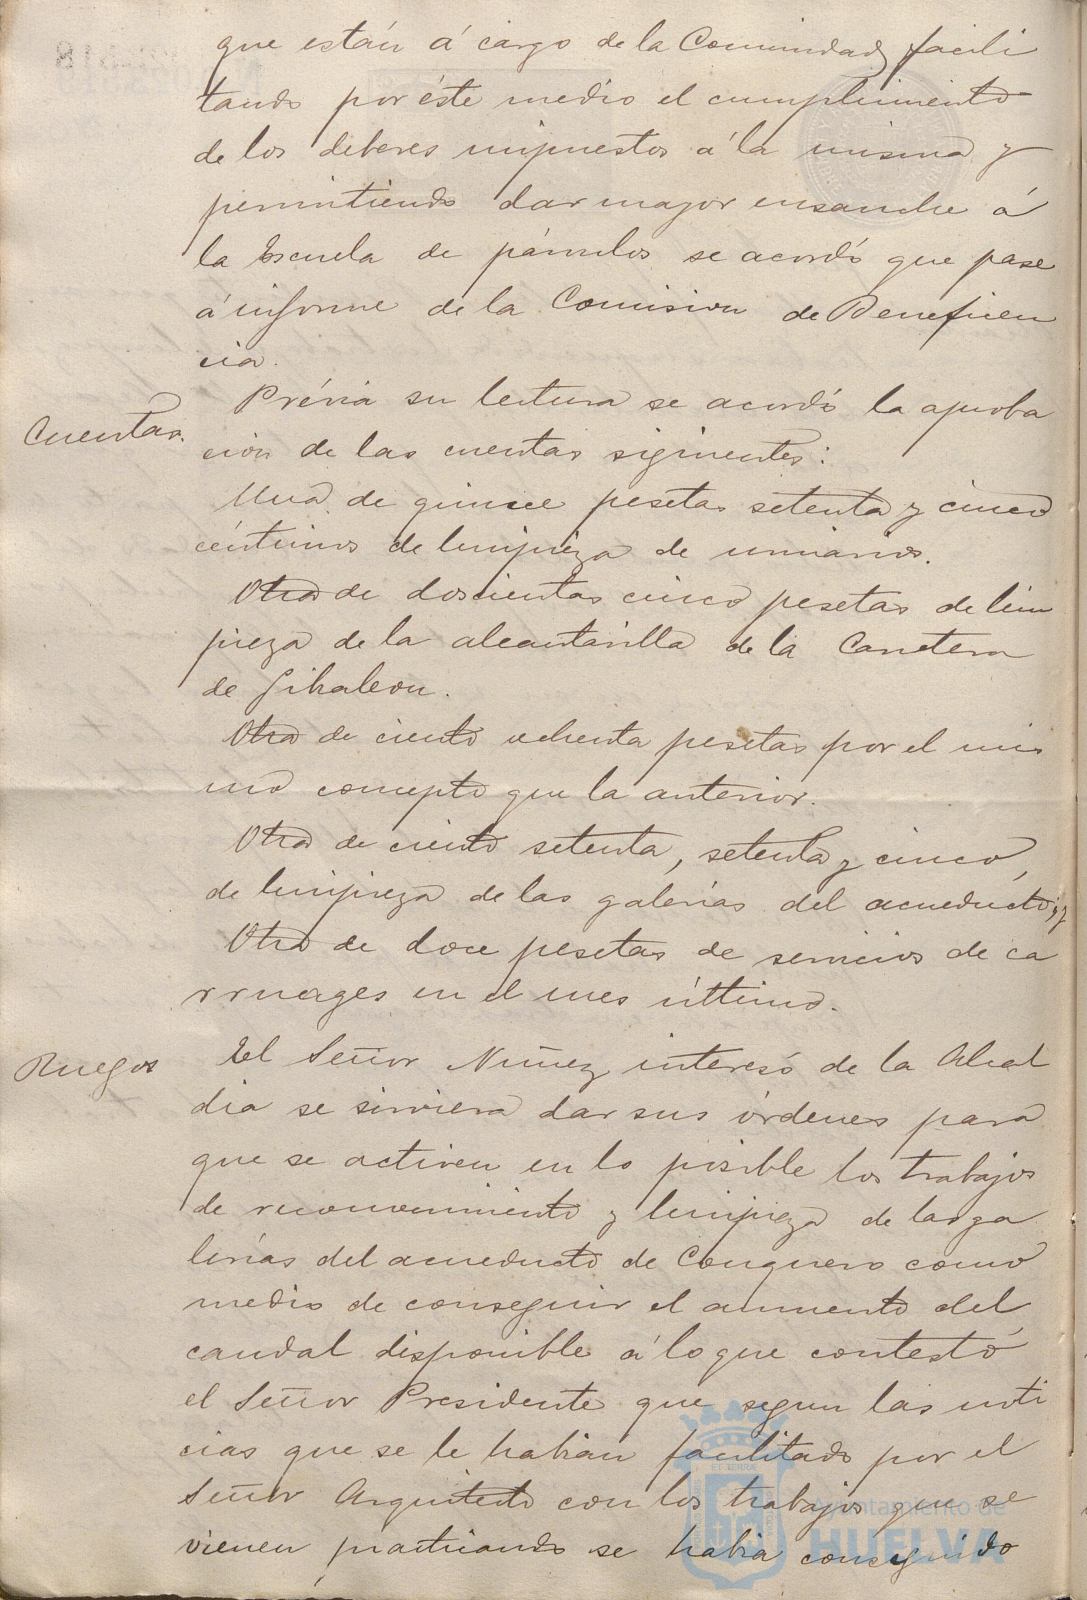 que están á cargo de la Comunidad facili
tando por éste medio el cumplimiento
de los deberes impuestos á la misma y
permitiendo dar mayor ensanche á
la Escuela de párvulos se acordó que pase
á informe de la Comision de Beneficen
cia.
Cuentas.
Prévia su lectura se acordó la aproba
ción de las cuentas siguientes:
Una de quince pesetas setenta y cinco
céntimos de limpieza de urinarios.
Otra de doscientas cinco pesetas de lim
pieza de la alcantarilla de la Carretera
de Gibraleon.
Otra de ciento ochenta pesetas por el mis
mo concepto que la anterior.
Otra de ciento setenta, setenta y cinco,
de limpieza de las galerías del acueducto; y
Otra de doce pesetas de servicios de ca
rruages en el mes último.
Ruegos
El Señor Nuñez interesó de la Alcal
dia se sirviera dar sus órdenes para
que se activen en lo posible los trabajos
de reconocimiento y limpieza de las ga
lerías del acueducto de Conquero como
medio de conseguir el aumento del
caudal disponible á lo que contestó
el Señor Presidente que segun las noti
cias que se le habian facilitado por el
Señor Arquitecto con los trabajos que se
vienen practicando se habia conseguido
Ayuntamiento de
HUELVA